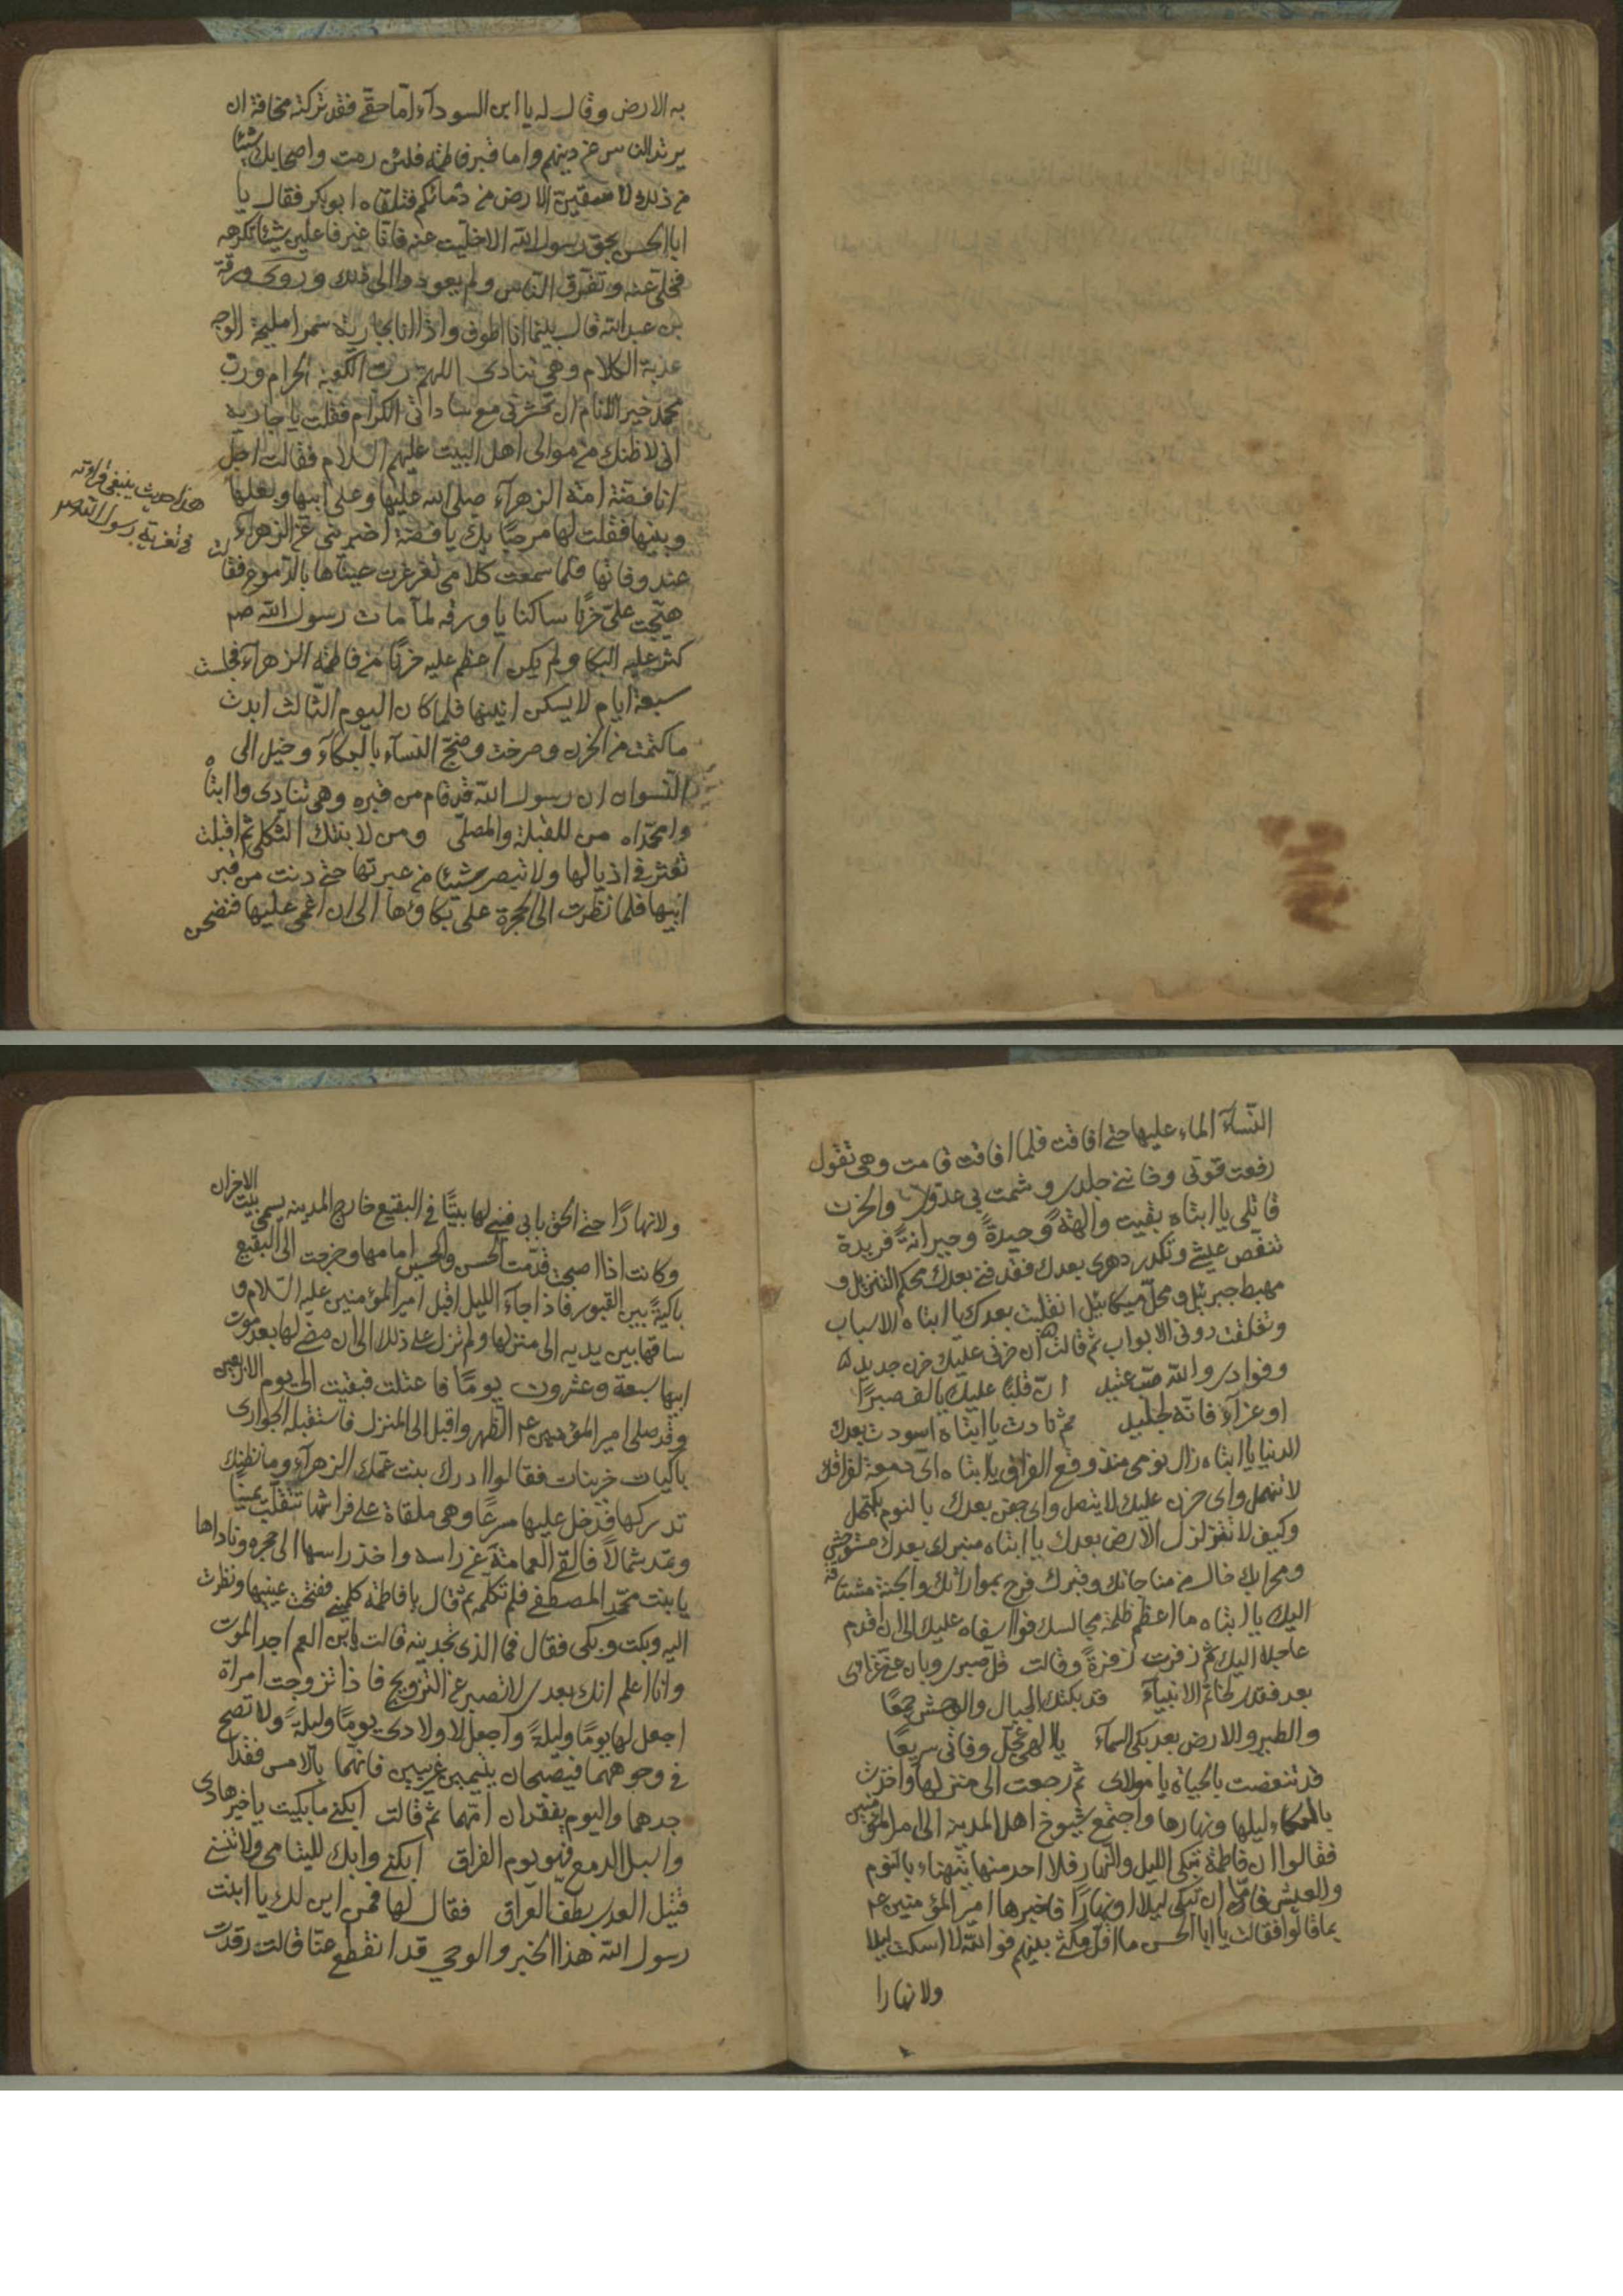 به الارض وقال له يا ابن السودآء امّا حقّے فقد تركته مخافة ان
يرتد الناس عن دينهم واما قبر فاطمة فلئن رمت واصحابك شيئا
من ذلك لاسقينّ الارض من دمائكم فتلقاه ابوبكر فقال يا
ابا الحسن بحق رسول الله الا خلّيت عنه فانّا غير فاعلين شيئا تكرهه
فخلّى عنه وتفرّق النّاس ولم يعودوا الى ذلك وروى ورقة
بن عبد الله قال بينما انا اطوف واذا انا بجارية سمرا مليحة الوجه
عذبة الكلام وهى تنادى اللهم ربّ الكعبة الحرام وربّ
محمد خير الانام ان تحشرنى مع ساداتى الكرام فقلت يا جارية
انى لاظنك من موالى اهل البيت عليهم السلام فقالت اجل
انا فضّة امة الزهرآء صلى الله عليها وعلى ابيها وبعلها
وبنيها فقلت لها مرحبًا بك يا فضّة اخبرينى عن الزهراء
عند وفاتها فلما سمعت كلامى تغرغرت عيناها بالدّموع فقالت
هيّجت علىّ حزنًا ساكنا يا ورقه لمّا مات رسول الله صم
كثر عليه البكا ولم يكن اعظم عليه حزنًا من فاطمة الزهرآء فجلست
سبعة ايام لا يسكن انينها فلما كان اليوم الثّالث ابدت
ما كتمت من الحزن وصرخت وضجّ النسآء بالبكآء وخيل الى
النّسوان ان رسول الله قد قام من قبره وهى تنادى وا ابتاه
وامحمّداه من للقبلة والمصلّى ومن لابنتك الثّكلى ثم اقبلت
تعثر فى اذيالها ولا تبصر شيئا من عبرتها حتى دنت من قبر
ابيها فلما نظرت الى الحجرة على بكاؤها الى ان اغمى عليها فنضحن
هذا حديث ينبغى قراءته
فى تعزية رسول الله ص
النّسآء الماء عليها حتى افاقت فلما افاقت قامت وهى تقول
رفعت قوتى وخاننى جلدى وشمت بى عدوى والحزن
قاتلى يا ابتاه بقيت والهةً وحيدةً وحيرانةً فريدة
تنغّص عيشى وتكدر دهرى بعدك فقد فنى بعدك محكم التنزيل و
مهبط جبرئيل ومحلّ ميكائيل انقلبت بعدك يا ابتاه الاسباب
وتغلقت دونى الابواب ثم قالت ان حزنى عليك حزن جديد
وفوادى والله صبّ عنيد انّ قلبًا عليك يالف صبرًا
او عزآء فانّه لجليل ثم نادت يا ابتاه اسودت بعدك
الدنيا يا ابتاه زال نومى منذ وقع الفراق يا ابتاه اى دمعة لفراقك
لا تنهمل واى حزن عليك لا يتصل واى جفن بعدك بالنوم يكتحل
وكيف لا تتزلزل الارض بعدك يا ابتاه منبرك بعدك مستوحش
ومحرابك خال من مناجاتك وقبرك فرح بمواراتك والجنة مشتاقة
اليك يا ابتاه ما اعظم ظلمة مجالسك فوا اسفاه عليك الى ان اقدم
عاجلا اليك ثم زفرت زفرةً وقالت قل صبرى وبان عنى عزائى
بعد فقدى لخاتم الانبيآء قد بكتك الجبال والوحش جمعًا
والطير والارض بعد بكى السمآء يا الهى عجّل وفاتى سريعًا
قد تنغصت بالحياة يا مولاى ثم رجعت الى منزلها واخذت
بالبكاء ليلها ونهارها واجتمع شيوخ اهل المدينة الى امير المؤمنين
فقالوا ان فاطمة تبكى الليل والنّهار فلا احد منها يتهناء بالنّوم
والعيش فامّا ان تبكى ليلا او نهارًا فاخبرها امير المؤمنين ع
بما قالوا فقالت يا ابا الحسن ما اقل مكثى بينهم فوا الله لا اسكت ليلا
ولا نهارا
ولا نهارًا حتى الحق بابى فبنى لها بيتًا فى البقيع خارج المدينه يسمى بيت الاحزان
وكانت اذا اصبحت قدّمت الحسن والحسين امامها وخرجت الى البقيع
باكيةً بين القبور فاذا جآء الليل اقبل امير المؤمنين عليه السّلام و
ساقها بين يديه الى منزلها ولم تزل على ذلك الى ان مضى لها بعد موت
ابيها سبعة وعشرون يومًا فاعتلت فبقيت الى يوم الاربعين
وقد صلى امير المؤمنين ع الظهر واقبل الى المنزل فاستقبله الجوارى
باكيات حزينات فقالوا ادرك بنت عمك الزهرآء وما نظنك
تدركها فدخل عليها مسرعًا وهى ملقاة على فراشها تتقلّب يمينا
وتمدّ شمالاً فالقى العمامة عن راسه واخذ راسها الى حجره وناداها
يا بنت محمّد المصطفى فلم تكلمه ثم قال يا فاطمة كلمينى ففتحت عينيها ونظرت
اليه وبكت وبكى فقال فما الذى تجدينه قالت يابن العم اجد الموت
وانا اعلم انك بعدى لا تصبر عن التزويج فاذا تزوجت امراة
اجعل لها يومًا وليلةً واجعل لاولادى يومًا وليلةً ولا تصح
فى وجوههما فيصبحان يتيمين غريبين فانهما بالامس فقدا
جدهما واليوم يفقدان امّهما ثم قالت ابكنى ما بكيت يا خير هادى
واسبل الدمع فهو يوم الفراق ابكنى وابك لليتامى ولا تنسى
قتيل العدى بطفّ العراق فقال لها فمن اين لك يا ابنت
رسول الله هذا الخبر والوحى قد انقطع عنّا قالت رقدت